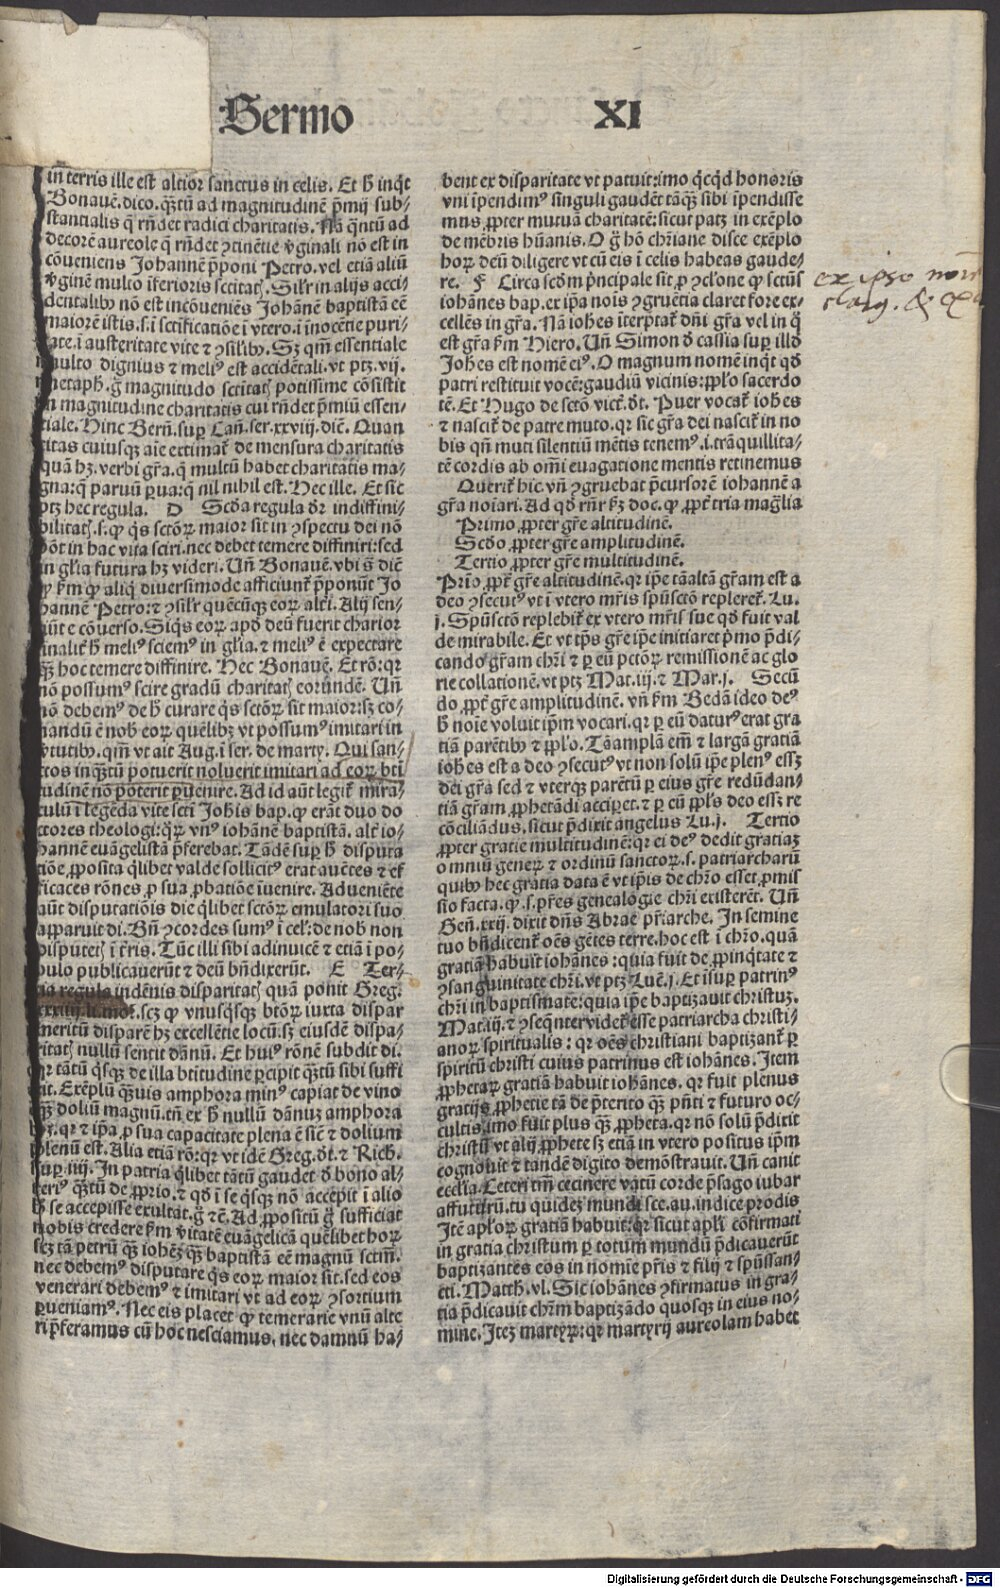 Sermo XI
in terris ille est altior sanctus in celis. Et h̄ inq̄t
Bonauē. dico. q̄ztū ad magnitudinē p̄mij sub-
stantialis q̄ rn̄det radici charitatis. Nā q̄ntū ad
decorē aureole q̄ rn̄det ꝯtinētie v̄ginali nō est in
cōueniens Johannē p̄poni Petro. vel etiā aliū
v̄ginē multo īferioris sctitatꝭ. Sil'r in alijs acci-
dentalibꝰ nō est incōueniēs Johānē baptistā eē
maiorē istis. s. i sctificatiōe i vtero. i inocētie puri-
ate. i austeritate vite ⁊ ꝯsilibꝰ. Sꝫ qm̄ essentiale
multo dignius ⁊ meliꝰ est accidētali. vt ptꝫ. vij.
metaph. g̊ magnitudo sctitatꝭ potissime cōsistit
in magnitudine charitatis cui rn̄det p̄miū essen-
tiale. Hinc Bern̄. suꝑ Cań. ser. xxviij. dič. Quan
titas cuiusqꝫ aīe extimat̄ de mensura charitatis
quā hꝫ. verbi gr̄a. q̄ multū habet charitatis ma-
gna: q̄ paruū ꝑua: q̄ nil nihil est. Hec ille. Et sic
ptꝫ hec regula. D Scd̄a regula dr̄ indiffini-
bilitatꝭ. s. ꝙ q̇s sctōꝝ maior sit in ꝯspectu dei nō
pōt in hac vita sciri. nec debet temere diffiniri: sed
in gl'ia futura hꝫ videri. Uñ Bonauē. vbi s̄ dič
ꝙ ẜm ꝙ aliq̇ diuersimode afficiunt̄ p̄ponūt Jo
hannē Petro: ⁊ ꝯsil'r quēcūqꝫ eoꝝ alt̄i. Alij sen-
tiūt e cōuerso. Siq̇s eoꝝ apd̄ deū fuerit charior
finalit̄ h̄ meliꝰ sciemꝰ in gl'ia. ⁊ meliꝰ ē expectare
q̄ꝫ hoc temere diffinire. Hec Bonauē. Et rō: qr
nō possumꝰ scire gradū charitatꝭ eorūndē. Uñ
nō debemꝰ de h̄ curare q̇s sctōꝝ sit maior: sꝫ co-
nandū ē nob̄ eoꝝ quēlibꝫ vt possumꝰ imitari in
v̄tutibꝰ. qm̄ vt ait Aug. i ser. de marty. Qui san-
ctos inq̄ztū potuerit noluerit imitari ad eoꝝ bti
tudinē nō poterit ꝑuenire. Ad id aūt legit̄ mira-
culū i legēda vite scti Johis bap. ꝙ erāt duo do
ctores theologi: q̄ꝝ vnꝰ iohānē baptistā. alt̄ io-
hannē euāgelistā p̄ferebat. Tādē suꝑ h̄ disputa
tiōe ꝓposita q̇libet valde sollicitꝰ erat auctes ⁊ ef
ficaces rōnes ꝓ sua ꝓbatiōe īuenire. Adueniēte
aūt disputatiōis die q̇libet sctōꝝ emulatori suo
apparuit di. Bn̄ ꝯcordes sumꝰ i cel': de nob̄ non
disputetꝭ i t̄ris. Tūc illi sibi adinuicē ⁊ etiā i po-
pulo publicauerūt ⁊ deū bn̄dixerūt. E Ter-
tia regula indēnis disparitatꝭ quā ponit Greg.
xxxiiij. li. moꝝ. scꝫ ꝙ vnusq̇sqꝫ btōꝝ iuxta dispar
meritū disparē hꝫ excellētie locū. sꝫ eiusdē dispa-
ritatꝭ nullū sentit dānū. Et huiꝰ rōnē subdit di.
qr tātū q̇sqꝫ de illa btitudine ꝑcipit q̄ztū sibi suffi
cit. Exēplū q̄ꝫuis amphora minꝰ capiat de vino
q̄ꝫ doliū magnū. tn̄ ex h̄ nullū dānuꝫ amphora
hꝫ. qr ⁊ ip̄a ꝓ sua capacitate plena ē sic̄ ⁊ dolium
plenū est. Alia etiā rō: qr vt idē Greg. dt̄. ⁊ Rich.
suꝑ. iiij. In patria q̇libet tātū gaudet d̄ bono al-
teriꝰ q̄ztū de ꝓprio. ⁊ qd̄ i se q̇sqꝫ nō accepit i alio
h̄ se accepisse exultat. g̊ ⁊c̄. Ad ꝓpositū g̊ sufficiat
nobis credere ẜm v̄itatē euāgelicā quēlibet hoꝝ
scꝫ tā petrū q̄ꝫ iohēꝫ q̄ꝫ baptistā eē magnū sctm̄.
nec debemꝰ disputare q̇s eoꝝ maior sit. sed eos
venerari debemꝰ ⁊ imitari vt ad eoꝝ ꝯsortium
ꝑueniamꝰ. Nec eis placet ꝙ temerarie vnū alte
ri p̄feramus cū hoc nesciamus. nec damnū ha-
bent ex disparitate vt patuit: imo q̇cq̇d honoris
vni īpendimꝰ singuli gaudēt tāq̄ꝫ sibi īpendisse
mus ꝓpter mutuā charitatē: sicut patꝫ in exēplo
de mēbris hūanis. O g̊ hō chr̄iane disce exēplo
hoꝝ deū diligere vt cū eis i celis habeas gaude-
re. F Circa scd̄m p̄ncipale sit ꝓ ꝯclone ꝙ sctūs
iohānes bap. ex ip̄a nois ꝯgruētia claret fore ex-
cellēs in gr̄a. Nā ioh̄es īterptat̄ dn̄i gr̄a vel in q̄
est gr̄a ẜm Hiero. Uñ Simon d̄ cassia suꝑ illd̄
Joh̄es est nomē eiꝰ. O magnum nomē inqt qd̄
patri restituit vocē: gaudiū vicinis: pplo sacerdo
tē. Et Hugo de sctō vict̄. dt̄. Puer vocat̄ ioh̄es
⁊ nascit̄ de patre muto. qr sic gr̄a dei nascit̄ in no
bis qn̄ muti silentiū mētis tenemꝰ. i. trāquillita-
tē cordis ab omni euagatione mentis retinemus
Querit̄ hic. vn̄ ꝯgruebat p̄cursorē iohannē a
gr̄a noīari. Ad qd̄ rn̄r ẜꝫ doc. ꝙ ꝓpt̄ tria mag̅lia
Primo ꝓpter gr̄e altitudinē.
Scd̄o ꝓpter gr̄e amplitudinē.
Tertio ꝓpter gr̄e multitudinē.
Prīo ꝓpt̄ gr̄e altitudinē. qr ip̄e tā altā gr̄am est a
deo ꝯsecutꝰ vt i vtero mr̄is spūsctō repleret̄. Lu.
j. Spūsctō replebit̄ ex vtero mr̄is sue qd̄ fuit val
de mirabile. Et vt tp̄s gr̄e ip̄e initiaret p̄mo p̄di-
cando gr̄am chr̄i ⁊ ꝑ eū pctōꝝ remissionē ac glo
rie collationē. vt ptꝫ Mat. iij. ⁊ Mar. j. Secū
do ꝓpt̄ gr̄e amplitudinē. vn̄ ẜm Bedā ideo deꝰ
h̄ noīe voluit ip̄m vocari. qr ꝑ eū daturꝰ erat gra
tiā parētibꝰ ⁊ pplo. Tā amplā em̄ ⁊ largā gratiā
ioh̄es est a deo ꝯsecutꝰ vt non solū ip̄e plenꝰ essꝫ
dei gr̄a sed ⁊ vterqꝫ parētū ꝑ eius gr̄e redūdan-
tiā gr̄am ꝓphetādi acciꝑet. ⁊ ꝑ eū ppl's deo essꝫ re
cōciliādus. sicut p̄dixit angelus Lu. j. Tertio
ꝓpter gratie multitudinē: qr ei deꝰ dedit gratiaꝫ
omniū geneꝝ ⁊ ordinū sanctoꝝ. s. patriarcharū
quibꝰ hec gratia data ē vt ip̄is de chr̄o esset ꝓmis
sio facta. ꝙ. s. pr̄es genealogie chr̄i existeret. Uñ
Gen̄. xxij. dixit dn̄s Abrae pr̄iarche. In semine
tuo bn̄dicent̄ oēs gētes terre. hoc est i chr̄o. quā
gratiā habuit iohānes: quia fuit de ꝓpinq̇tate ⁊
ꝯsanguinitate chr̄i. vt ptꝫ Luc̄. j. Et īsuꝑ patrinꝰ
chr̄i in baptismate: quia ip̄e baptizauit christuꝫ.
Mat. iij. ⁊ ꝯseq̄nter videt̄ esse patriarcha christi-
anoꝝ spiritualis: qr oēs christiani baptizant̄ ꝑ
spiritū christi cuius patrinus est iohānes. Item
ꝓphetaꝝ gratiā habuit iohānes. qr fuit plenus
gratijs ꝓphetie tā de p̄terito q̄ꝫ pn̄ti ⁊ futuro oc-
cultis. imo fuit plus q̄ꝫ ꝓpheta. qr nō solū p̄dixit
christū vt alij ꝓphete sꝫ etiā in vtero positus ip̄m
cognouit ⁊ tandē digito demōstrauit. Uñ canit
ecclia. Ceteri tm̄ cecinere vatū corde p̄sago iubar
affuturū. tu quideꝫ mundi sce. au. indice prodis
Itē apl'oꝝ gratiā habuit: qr sicut apl'i cōfirmati
in gratia christum ꝑ totum mundū p̄dicauerūt
baptizantes eos in nomīe pr̄is ⁊ filij ⁊ spūssan-
cti. Matth. vl. Sic iohānes ꝯfirmatus in gra-
tia p̄dicauit chr̄m baptizādo quosqꝫ in eius no-
mine. Iteꝫ martyꝝ: qr martyrij aureolam habet
ex ipso
Digitalisierung gefördert durch die Deutsche Forschungsgemeinschaft - DFG